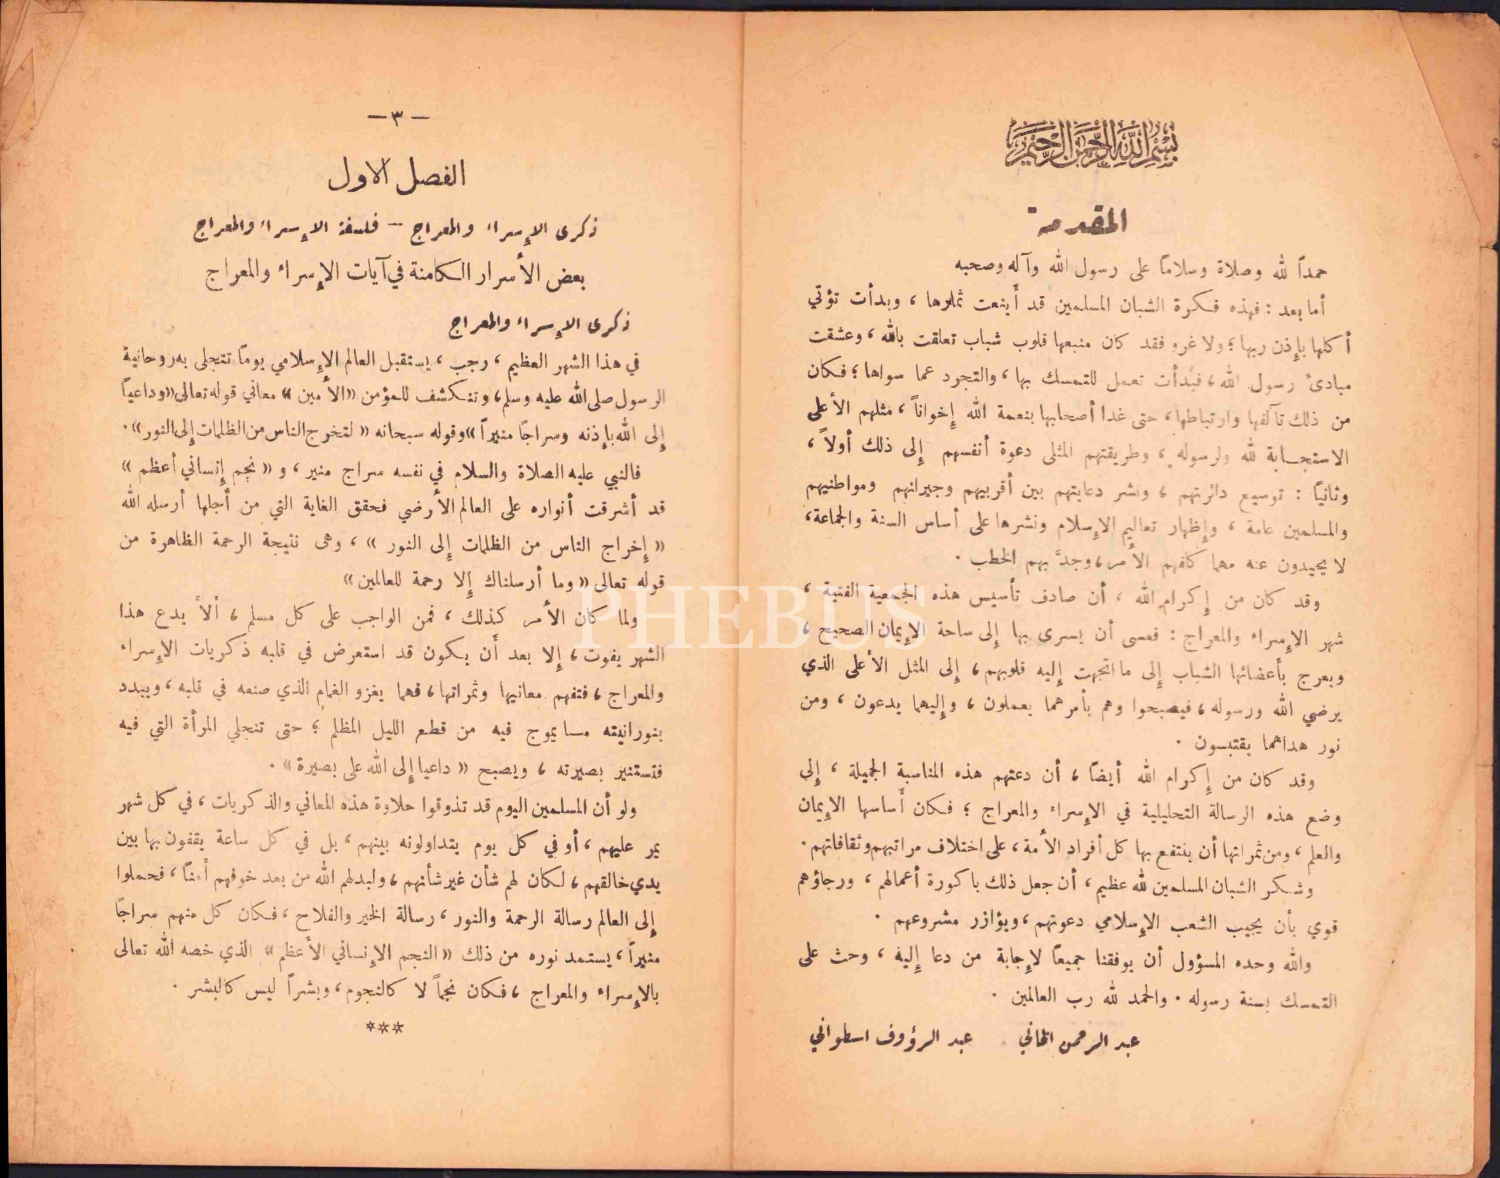 بسم الله الرحمن الرحيم
المقدمة
حمداً لله وصلاة وسلاماً على رسول الله وآله وصحبه
أما بعد : فهذه فكرة الشبان المسلمين قد أينعت ثمارها ، وبدأت تؤتي
أكلها بإذن ربها ؛ ولا غرو فقد كان منبعها قلوب شباب تعلقت بالله ، وعشقت
مبادئ رسول الله ، فبدأت تعمل للتمسك بها ، والتجرد عما سواها ؛ فكان
من ذلك تآلفها وارتباطها ، حتى غدا أصحابها بنعمة الله إخواناً ، مثلهم الأعلى
الاستجابة لله ولرسوله ، وطريقتهم المثلى دعوة أنفسهم إلى ذلك أولاً ،
وثانياً : توسيع دائرتهم ، ونشر دعايتهم بين أقربيهم وجيرانهم ومواطنيهم
والمسلمين عامة ، وإظهار تعاليم الإسلام ونشرها على أساس السنة والجماعة ،
لا يحيدون عنه مهما كلفهم الأمر ، وجدَّ بهم الخطب .
وقد كان من إكرام الله ، أن صادف تأسيس هذه الجمعية الفتية ،
شهر الإسراء والمعراج : فعسى أن يسرى بها إلى ساحة الإيمان الصحيح ،
ويعرج بأعضائها الشباب إلى ما اتجهت إليه قلوبهم ، إلى المثل الأعلى الذي
يرضي الله ورسوله ، فيصبحوا وهم بأمرهما يعملون ، وإليهما يدعون ، ومن
نور هداهما يقتبسون .
وقد كان من إكرام الله أيضاً ، أن دعتهم هذه المناسبة الجميلة ، إلى
وضع هذه الرسالة التحليلية في الإسراء والمعراج ؛ فكان أساسها الإيمان
والعلم ، ومن ثمراتها أن ينتفع بها كل أفراد الأمة ، على اختلاف مراتبهم وثقافاتهم .
وشكر الشبان المسلمين لله عظيم ، أن جعل ذلك باكورة أعمالهم ، ورجاؤهم
قوي بأن يجيب الشعب الإسلامي دعوتهم ، ويؤازر مشروعهم .
والله وحده المسؤول أن يوفقنا جميعاً لإجابة من دعا إليه ، وحث على
التمسك بسنة رسوله . والحمد لله رب العالمين .
عبد الرحمن الخاني عبد الرؤوف اسطواني
— ٣ —
الفصل الاول
ذكرى الإسراء والمعراج — فلسفة الإسراء والمعراج
بعض الأسرار الكامنة في آيات الإسراء والمعراج
ذكرى الإسراء والمعراج
في هذا الشهر العظيم ، رجب ، يستقبل العالم الإسلامي يوماً تتجلى به روحانية
الرسول صلى الله عليه وسلم ، وتنكشف للمؤمن «الأمين» معاني قوله تعالى «وداعياً
إلى الله بإذنه وسراجاً منيراً» وقوله سبحانه « لتخرج الناس من الظلمات إلى النور» .
فالنبي عليه الصلاة والسلام في نفسه سراج منير ، و « نجم إنساني أعظم »
قد أشرقت أنواره على العالم الأرضي فحقق الغاية التي من أجلها أرسله الله
« إخراج الناس من الظلمات إلى النور » ، وهى نتيجة الرحمة الظاهرة من
قوله تعالى « وما أرسلناك إلا رحمة للعالمين »
ولما كان الأمر كذلك ، فمن الواجب على كل مسلم ، ألا يدع هذا
الشهر يفوت ، إلا بعد أن يكون قد استعرض في قلبه ذكريات الإسراء
والمعراج ، فتفهم معانيها وثمراتها ، فهما يغزو الغمام الذي صنعه في قلبه ، ويبدد
بنورانيته مسا يموج فيه من قطع الليل المظلم ؛ حتى تنجلي المرأة التي فيه
فتستنير بصيرته ، ويصبح « داعيا إلى الله على بصيرة » .
ولو أن المسلمين اليوم قد تذوقوا حلاوة هذه المعاني والذكريات ، في كل شهر
يمر عليهم ، أو في كل يوم يتداولونه بينهم ، بل في كل ساعة يقفون بها بين
يدي خالقهم ، لكان لهم شأن غير شأنهم ، ولبدلهم الله من بعد خوفهم أمناً ، فحملوا
إلى العالم رسالة الرحمة والنور ، رسالة الخير والفلاح ، فكان كل منهم سراجاً
منيراً ، يستمد نوره من ذلك « النجم الإنساني الأعظم » الذي خصه الله تعالى
بالإسراء والمعراج ، فكان نجماً لا كالنجوم ، وبشراً ليس كالبشر .
***
PHEBUS